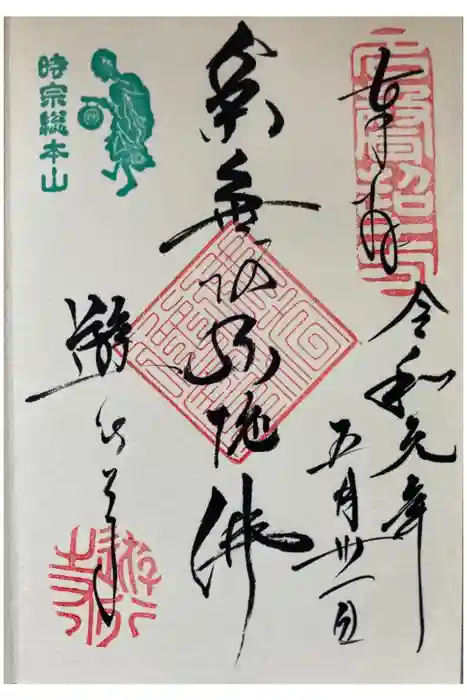 奉拝
令和元年
五月卅一日
南無阿弥陀佛
時宗総本山
遊行寺
遊行寺